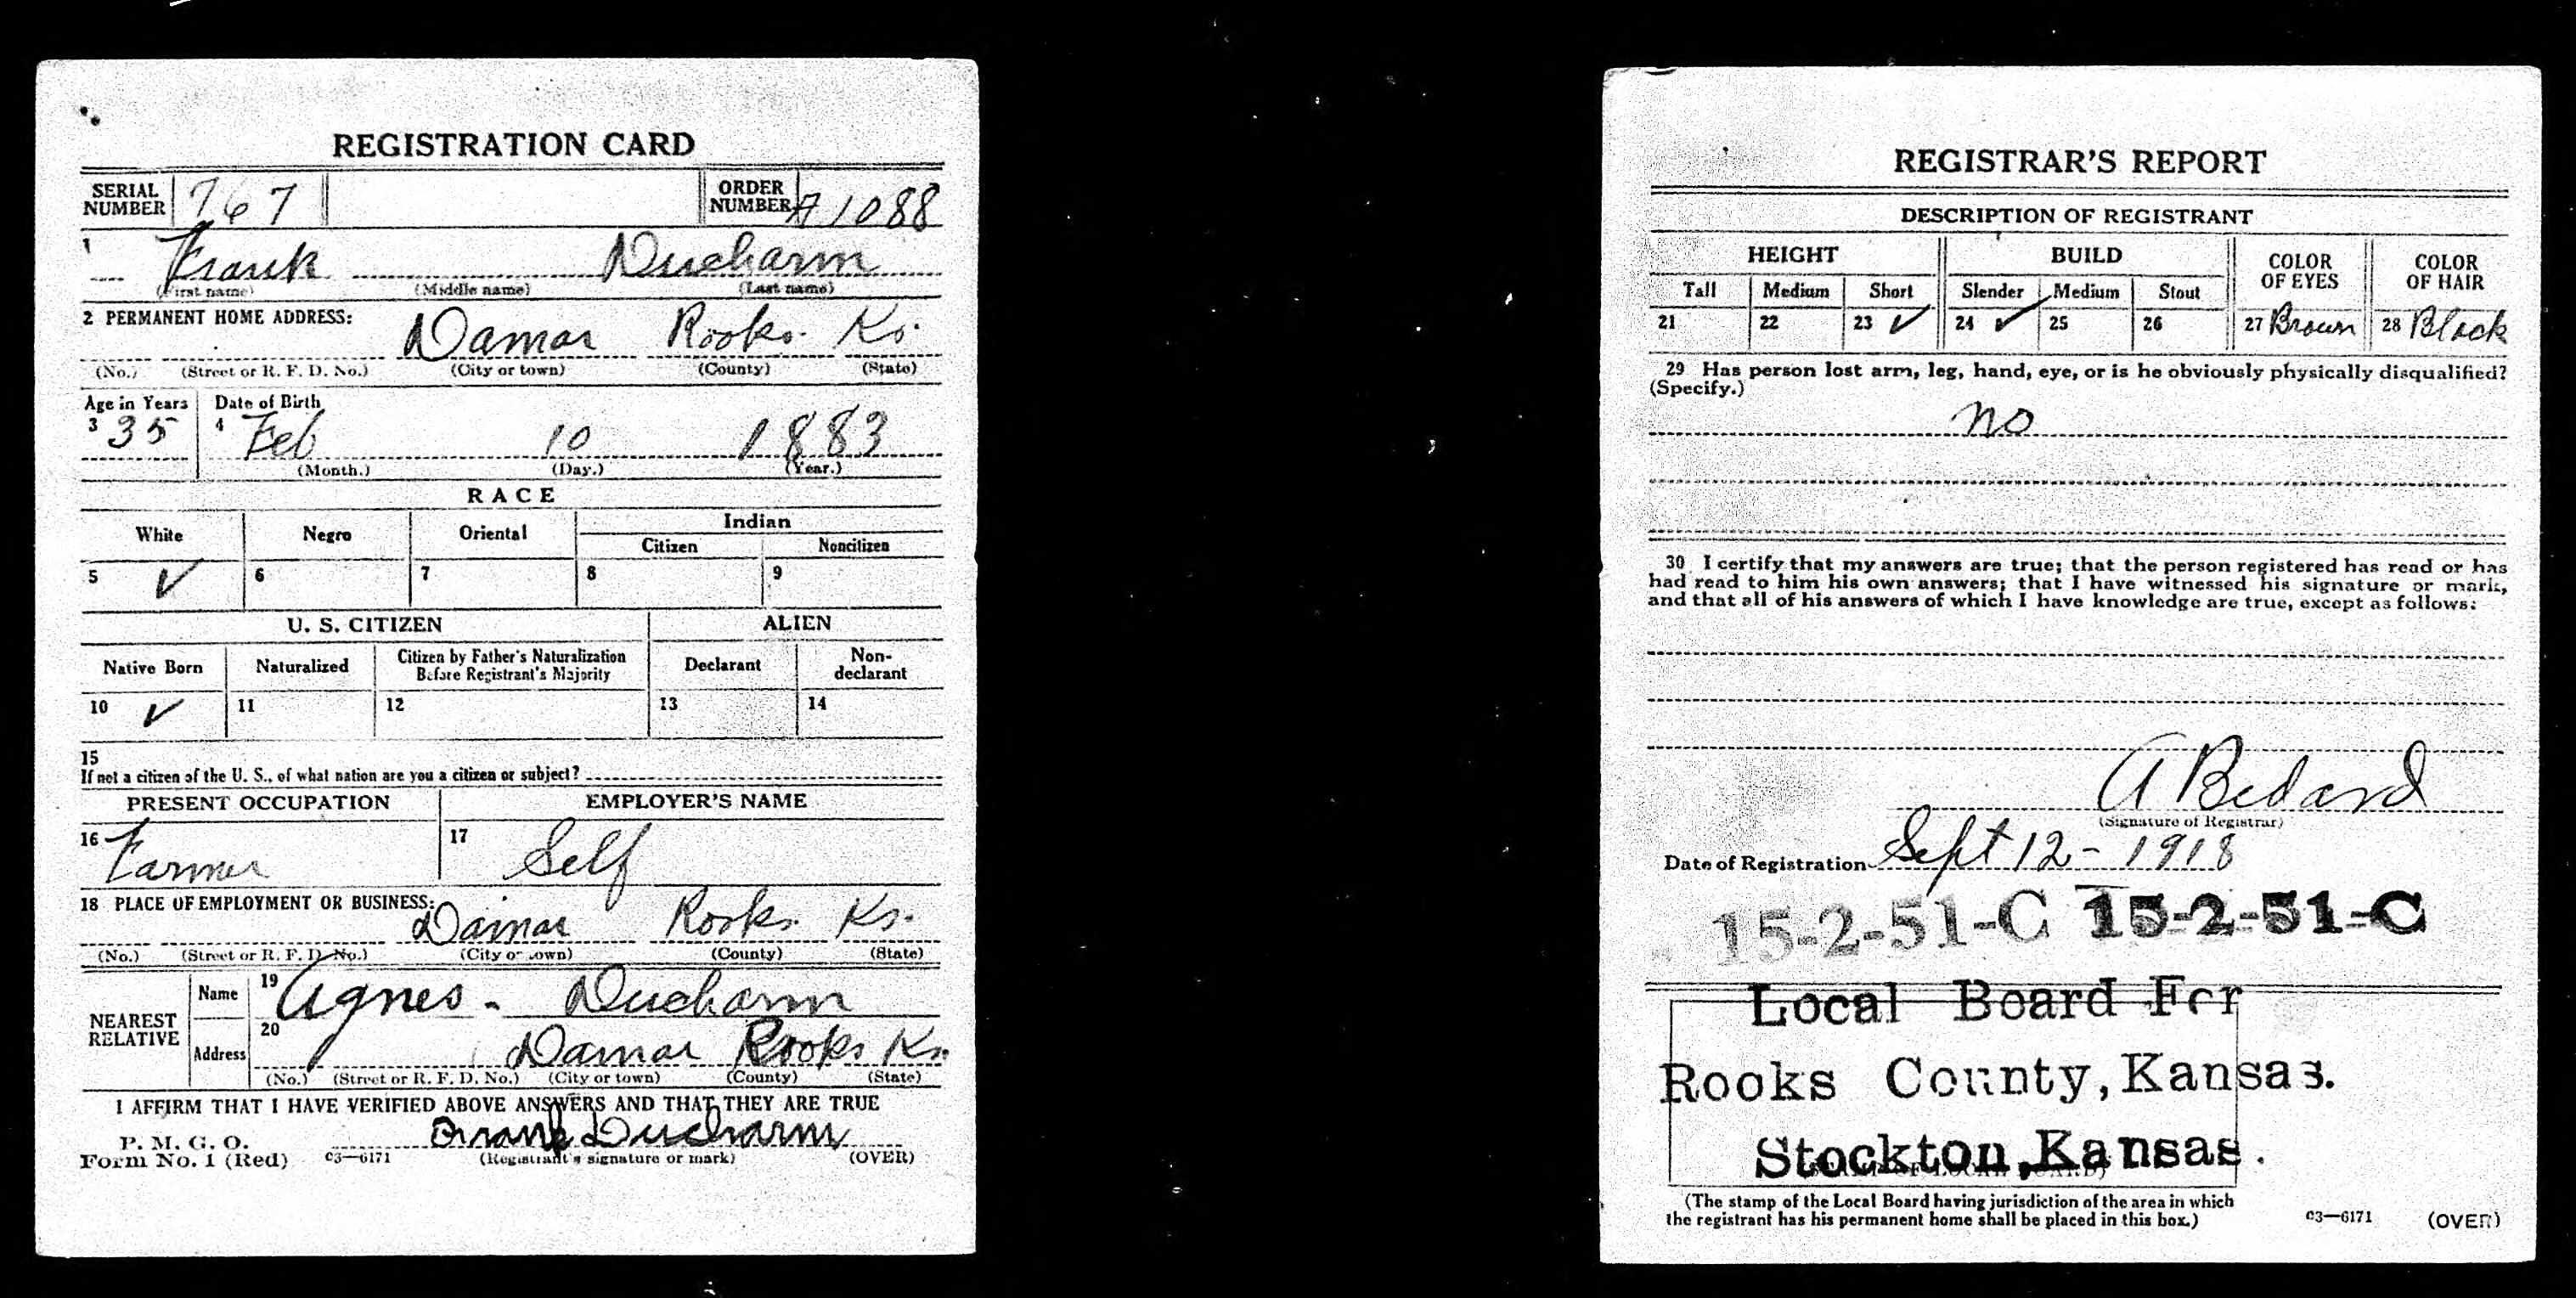 REGISTRATION CARD
SERIAL NUMBER 767 ORDER NUMBER A1088
1 Frank Ducharm
(First name) (Middle name) (Last name)
2 PERMANENT HOME ADDRESS: Damar Rooks. Ks.
(No.) (Street or R. F. D. No.) (City or town) (County) (State)
Age in Years Date of Birth
3 35 4 Feb 10 1883
(Month.) (Day.) (Year.)
RACE
White Negro Oriental Indian
Citizen Noncitizen
5 ✓ 6 7 8 9
U. S. CITIZEN ALIEN
Native Born Naturalized Citizen by Father's Naturalization Before Registrant's Majority Declarant Non-declarant
10 ✓ 11 12 13 14
15
If not a citizen of the U. S., of what nation are you a citizen or subject?
PRESENT OCCUPATION EMPLOYER'S NAME
16 Farmer 17 Self
18 PLACE OF EMPLOYMENT OR BUSINESS: Damar Rooks. Ks.
(No.) (Street or R. F. D. No.) (City or town) (County) (State)
NEAREST RELATIVE Name 19 Agnes - Ducharm
Address 20 Damar Rooks Ks.
(No.) (Street or R. F. D. No.) (City or town) (County) (State)
I AFFIRM THAT I HAVE VERIFIED ABOVE ANSWERS AND THAT THEY ARE TRUE
P. M. G. O.
Form No. 1 (Red) c3—6171 Frank Ducharm
(Registrant's signature or mark) (OVER)
REGISTRAR'S REPORT
DESCRIPTION OF REGISTRANT
HEIGHT BUILD COLOR OF EYES COLOR OF HAIR
Tall Medium Short Slender Medium Stout
21 22 23 ✓ 24 ✓ 25 26 27 Brown 28 Black
29 Has person lost arm, leg, hand, eye, or is he obviously physically disqualified?
(Specify.)
no
30 I certify that my answers are true; that the person registered has read or has
had read to him his own answers; that I have witnessed his signature or mark,
and that all of his answers of which I have knowledge are true, except as follows:
A Bedard
(Signature of Registrar)
Date of Registration Sept 12 - 1918
15-2-51-C 15-2-51-C
Local Board For
Rooks County, Kansas.
Stockton, Kansas.
(The stamp of the Local Board having jurisdiction of the area in which
the registrant has his permanent home shall be placed in this box.)
c3—6171 (OVER)